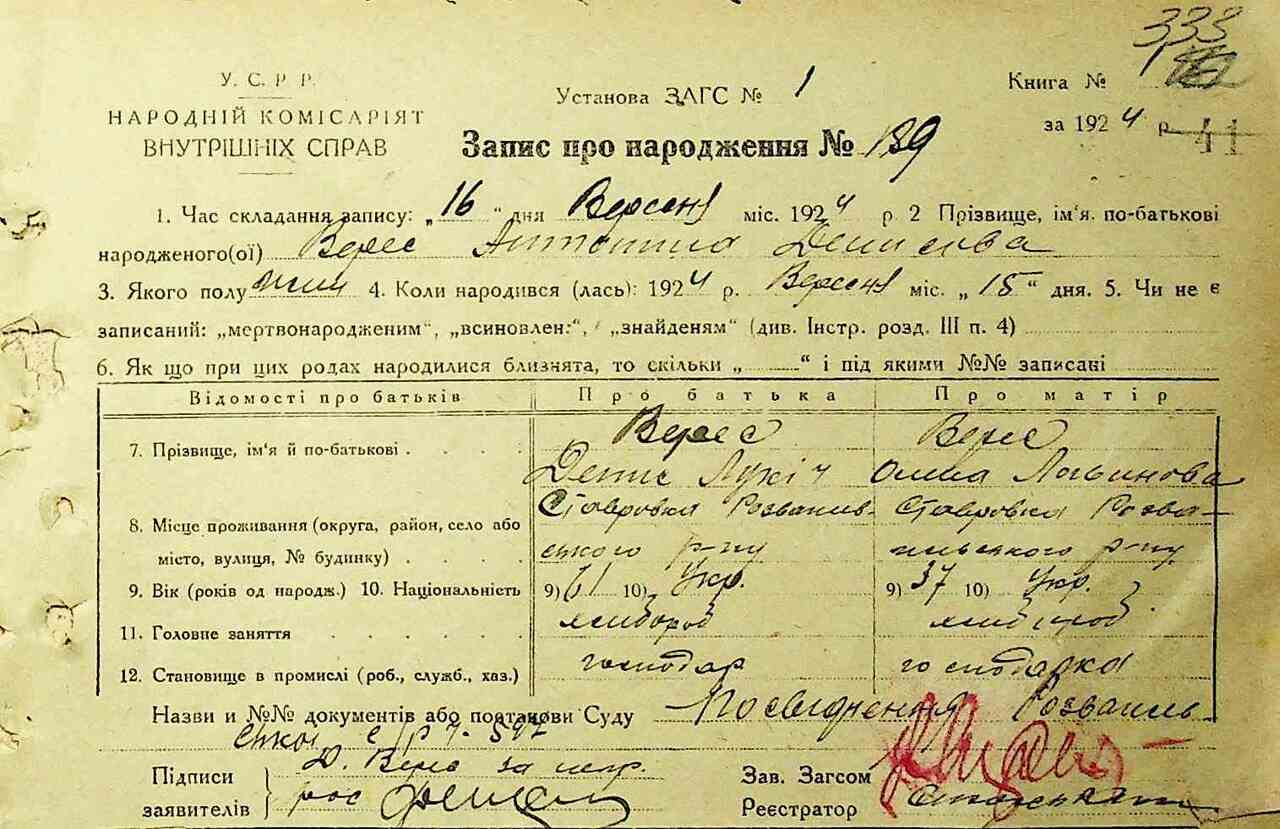 333
У. С. Р Р.
НАРОДНІЙ КОМІСАРІЯТ
ВНУТРІШНІХ СПРАВ
Установа ЗАГС № 1
Книга №
за 1924 р. 41
Запис про народження № 139
1. Час складання запису: „16 “ дня Вересня міс. 1924 р. 2 Прізвище, ім'я. по-батькові
народженого(ої) Верес Антонина Денисова
3. Якого полу жін 4. Коли народився (лась): 1924 р. Вересня міс. „ 15 “ дня. 5. Чи не є
записаний: „мертвонародженим“, „всиновлен:“, „знайденям“ (див. Інстр. розд. III п. 4)
6. Як що при цих родах народилися близнята, то скільки „ “ і під якими №№ записані
Відомості про батьків Про батька Про матір
7. Прізвище, ім'я й по-батькові . . . . Верес Верес
Денис Лукіч Логвинова
8. Місце проживання (округа, район, село або Ставровка Розважив- Ставровка Розва-
місто, вулиця, № будинку) . . . . ського р-ну жівського р-ну
9. Вік (років од народж.) 10. Національність 9) 61 10) Укр. 9) 37 10) Укр.
11. Головне заняття . . . . . . хлібороб хлібороб
12. Становище в промислі (роб., служб., хаз.) господар господарка
Назви и №№ документів або постанови Суду Посвідчення
547
Підписи Д. Верес за непр. Зав. Загсом
заявителів рос Реєстратор